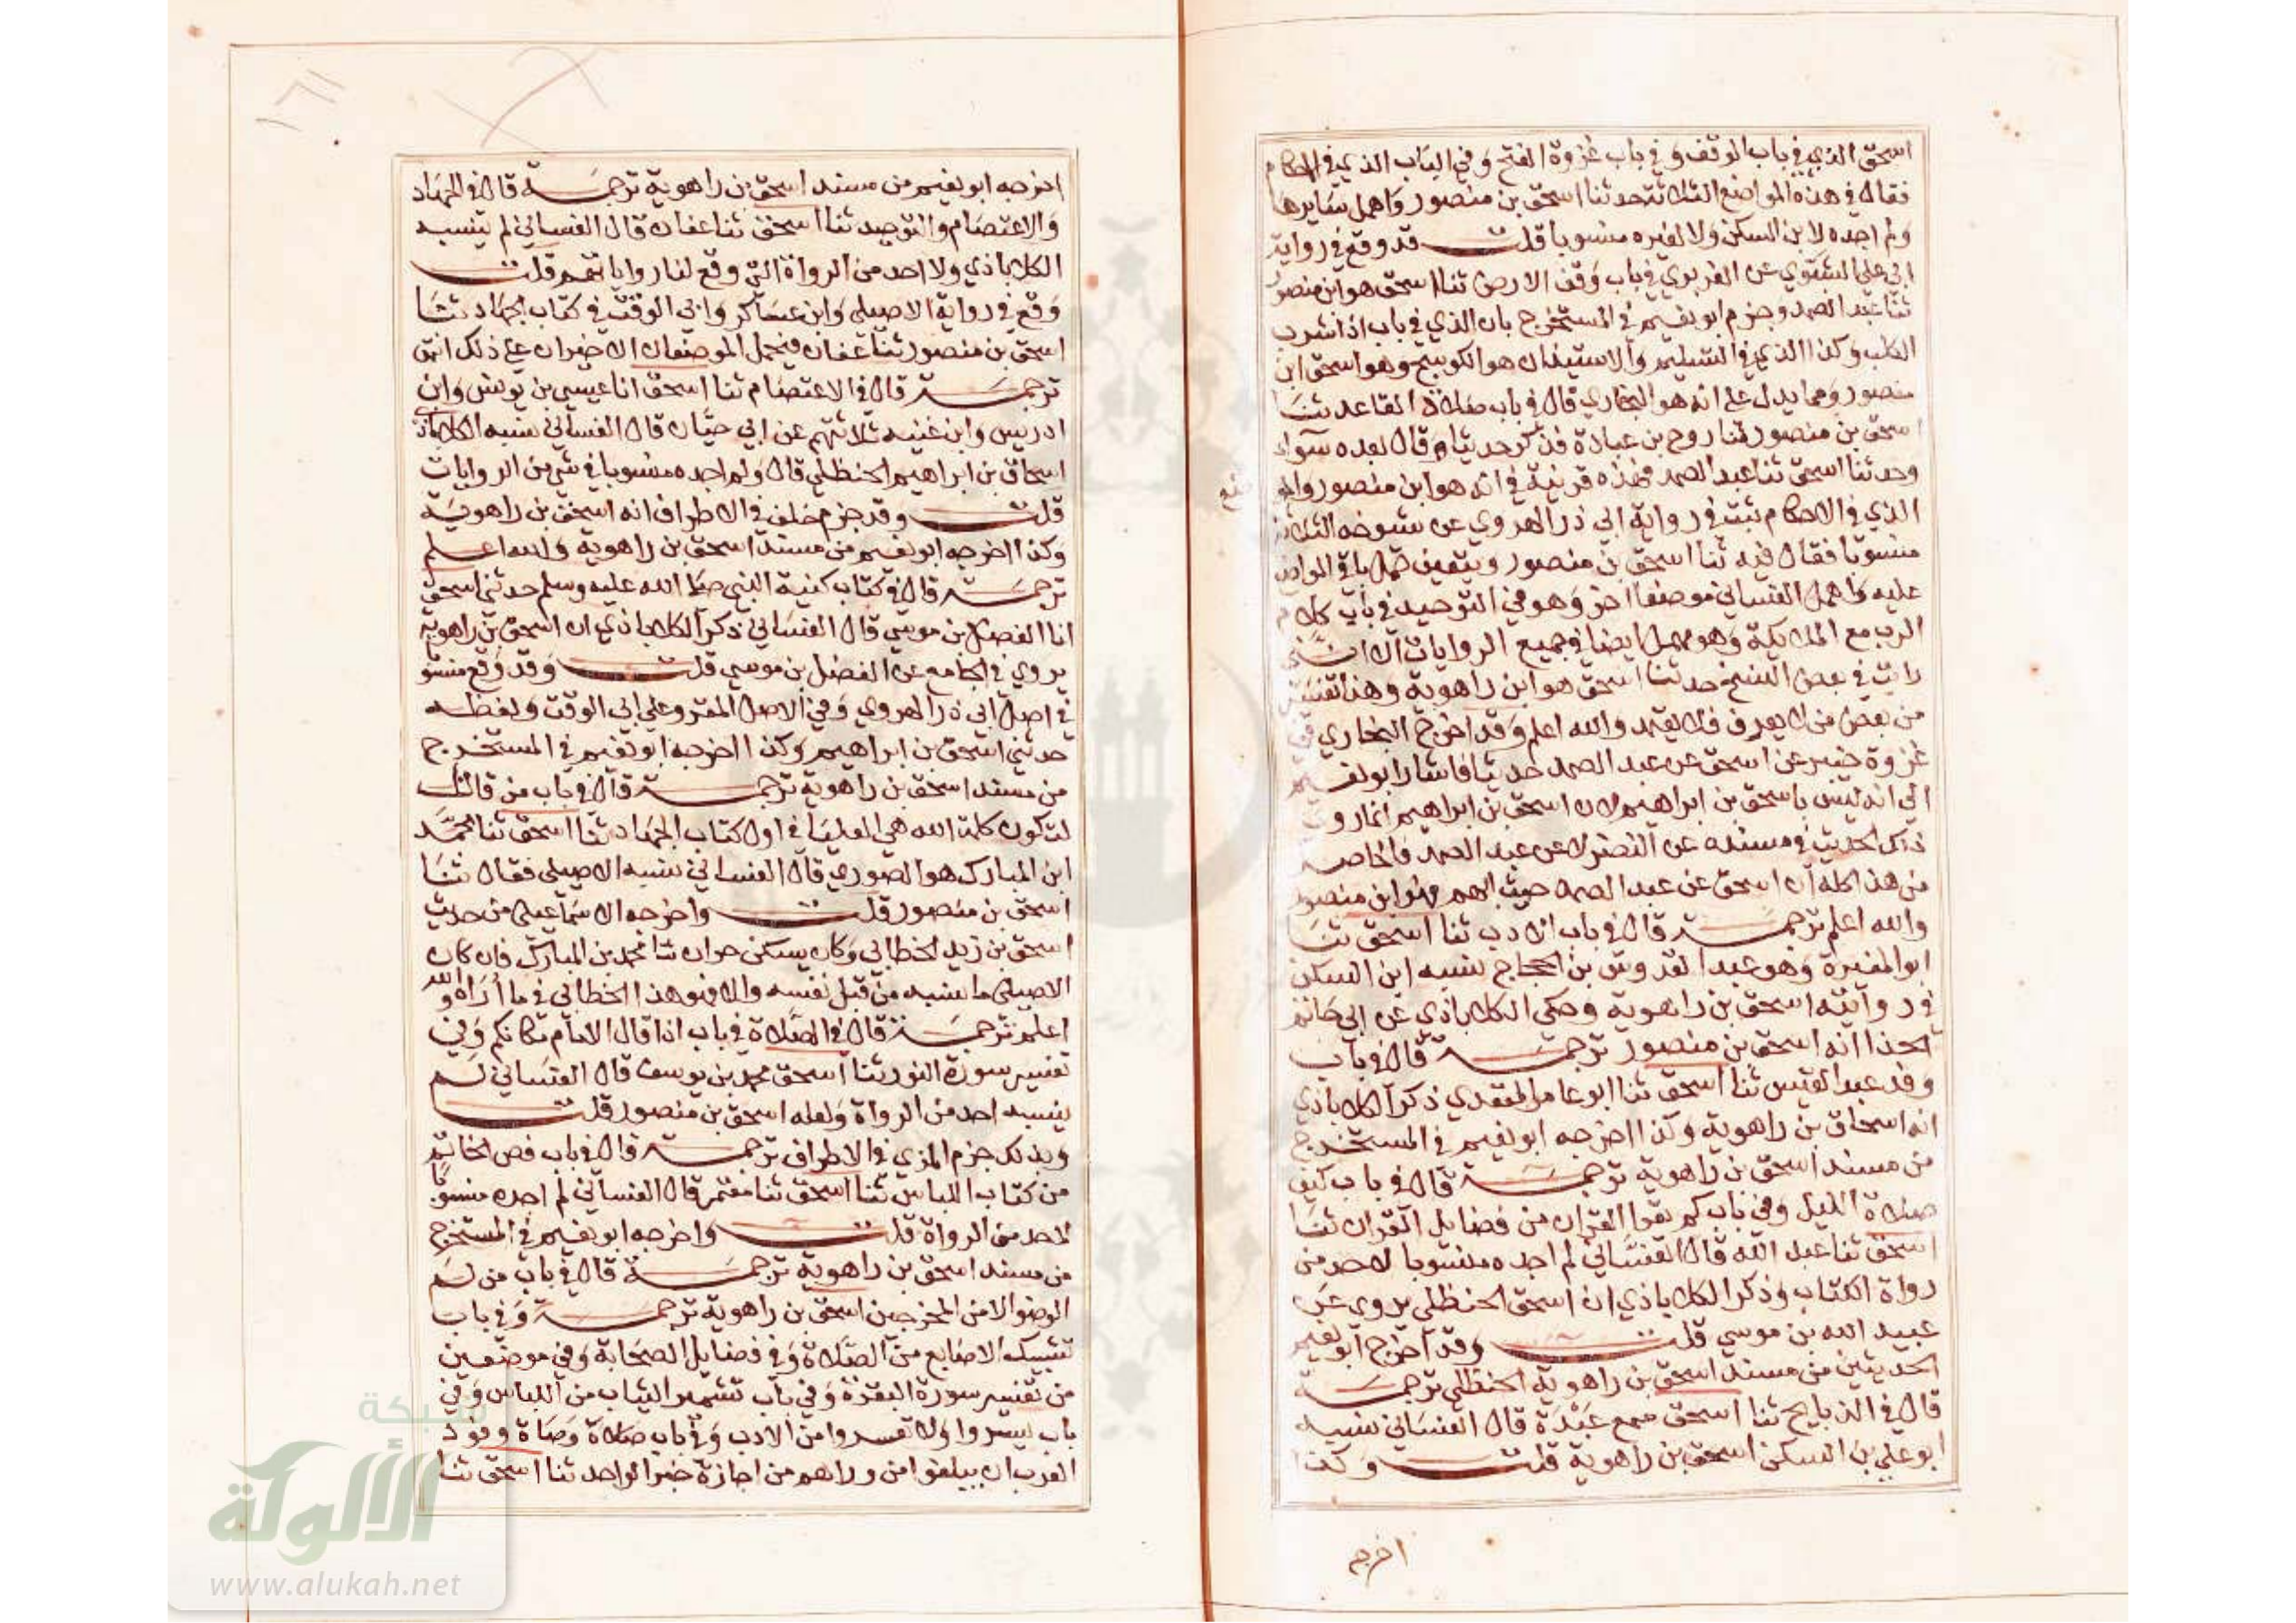 اسحق الذي في باب الوقف وفي باب غزوة الفتح وفي الباب الذي في الاحكام
فقال في هذه المواضع الثلاثة حدثنا اسحق بن منصور واهمل سايرها
ولم اجده لابن السكن ولا لغيره منسوبا قلت قد وقع في رواية
ابي علي الشبوي عن الفربري في باب وقف الارض ثنا اسحق هو ابن منصور
ثنا عبد الصمد وجزم ابو نعيم في المستخرج بان الذي في باب اذا شرب
الكلب وكذا الذي في التسليم والاستيذان هو الكوسج وهو اسحق ابن
منصور ومما يدل على انه هو البخاري قال في باب صلاة القاعد ثنا
اسحق بن منصور ثنا روح بن عبادة فذكر حديثا وقال بعده سواء
وحدثنا اسحق ثنا عبد الصمد فهذه قرينة في انه هو ابن منصور
الذي في الاحكام ثبت في رواية ابي ذر الهروي عن شيوخه الثلاثة
منسوبا فقال فيه ثنا اسحق بن منصور ويتعين حمل باقي المواضع
عليه واهمل الغساني موضعا اخر وهو في التوحيد في باب كلام
الرب مع الملايكة وهو مهمل ايضا في جميع الروايات الا انني
رايت في بعض النسخ حدثنا اسحق هو ابن راهوية وهذا تفسير
من بعض من لا يعرف فلا يعتمد والله اعلم وقد اخرج البخاري في
غزوة خيبر عن اسحق عن عبد الصمد حديثا فاشار ابو نعيم
الي انه ليس باسحق بن ابراهيم لان اسحق بن ابراهيم انما روى
ذلك الحديث في مسنده عن النضر لا عن عبد الصمد فالحاصل
من هذا كله ان اسحق عن عبد الصمد حيث ابهم فهو ابن منصور
والله اعلم ترجمة قال في باب الادب ثنا اسحق ثنا
ابو المغيرة وهو عبد القدوس بن الحجاج نسبه ابن السكن
في روايته اسحق بن راهوية وحكى الكلاباذي عن ابي حاتم
الحذا انه اسحق بن منصور ترجمة قال في باب
وفد عبد القيس ثنا اسحق ثنا ابو عامر العقدي ذكر الكلاباذي
انه اسحاق بن راهوية وكذا اخرجه ابو نعيم في المستخرج
من مسند اسحق بن راهوية ترجمة قال في باب كيف
صلاة الليل وفي باب كم يقرا القران من فضايل القران ثنا
اسحق ثنا عبيد الله قال الغساني لم اجده منسوبا لاحد من
رواة الكتاب وذكر الكلاباذي ان اسحق الحنظلي يروي عن
عبيد الله بن موسي قلت وقد اخرج ابو نعيم
الحديثين من مسند اسحق بن راهوية الحنظلي ترجمة
قال في الذبايح ثنا اسحق سمع عبدة قال الغساني نسبه
ابو علي بن السكن اسحق بن راهوية قلت وكذا
اخرجه
اخرجه ابو نعيم من مسند اسحق بن راهوية ترجمة قال في الجهاد
والاعتصام والتوحيد ثنا اسحق ثنا عفان قال الغساني لم ينسبه
الكلاباذي ولا احد من الرواة التي وقع لنا رواياتهم قلت
وقع في رواية الاصيلي وابن عساكر وابي الوقت في كتاب الجهاد ثنا
اسحق بن منصور ثنا عفان فيحمل الموضعان الاخيران على ذلك انتهى
ترجمة قال في الاعتصام ثنا اسحق انا عيسي بن يونس وابن
ادريس وابن غنية ثلاثتهم عن ابي حيان قال الغساني نسبه الكلاباذي
اسحاق بن ابراهيم الحنظلي قال ولم اجده منسوبا في شي من الروايات
قلت وقد جزم خلف في الاطراف انه اسحق بن راهوية
وكذا اخرجه ابو نعيم من مسند اسحق بن راهوية والله اعلم
ترجمة قال في كتاب كنية النبي صلى الله عليه وسلم حدثني اسحق
انا الفضل بن موسي قال الغساني ذكر الكلاباذي ان اسحق بن راهوية
يروي في الجامع عن الفضل بن موسي قلت وقد وقع منسو
في اصل ابي ذر الهروي وفي الاصل المقرو على ابي الوقت ولفظه
حدثني اسحق بن ابراهيم وكذا اخرجه ابو نعيم في المستخرج
من مسند اسحق بن راهوية ترجمة قال في باب من قاتل
لتكون كلمة الله هي العليا في اول كتاب الجهاد ثنا اسحق ثنا محمد
ابن المبارك هو الصوري قال الغساني نسبه الاصيلي فقال ثنا
اسحق بن منصور قلت واخرجه الاسماعيلي من حديث
اسحق بن زيد الخطابي وكان يسكن حران ثنا محمد بن المبارك فان كان
الاصيلي ما نسبه من قبل نفسه والا فهو هذا الخطابي في ما اراه والله
اعلم ترجمة قال في الصلاة في باب اذا قال الامام مكانكم وفي
تفسير سورة النور ثنا اسحق محمد بن يوسف قال الغساني لم
ينسبه احد من الرواة ولعله اسحق بن منصور قلت
وبذلك جزم المزي في الاطراف ترجمة قال في باب فص الخاتم
من كتاب اللباس ثنا اسحق ثنا معتمر قال الغساني لم اجده منسوبا
لاحد من الرواة قلت واخرجه ابو نعيم في المستخرج
من مسند اسحق بن راهوية ترجمة قال في باب من لم
الوضو الا من المخرجين اسحق بن راهوية ترجمة وفي باب
تشبيك الاصابع من الصلاة وفي فضايل الصحابة وفي موضعين
من تفسير سورة البقرة وفي باب تشمير الثياب من اللباس وفي
باب يسروا ولا تعسروا من الادب وفي باب وصاة وفود
العرب ان يبلغوا من وراهم من اجازة خبر الواحد ثنا اسحق ثنا
شبكة
الألوكة
www.alukah.net